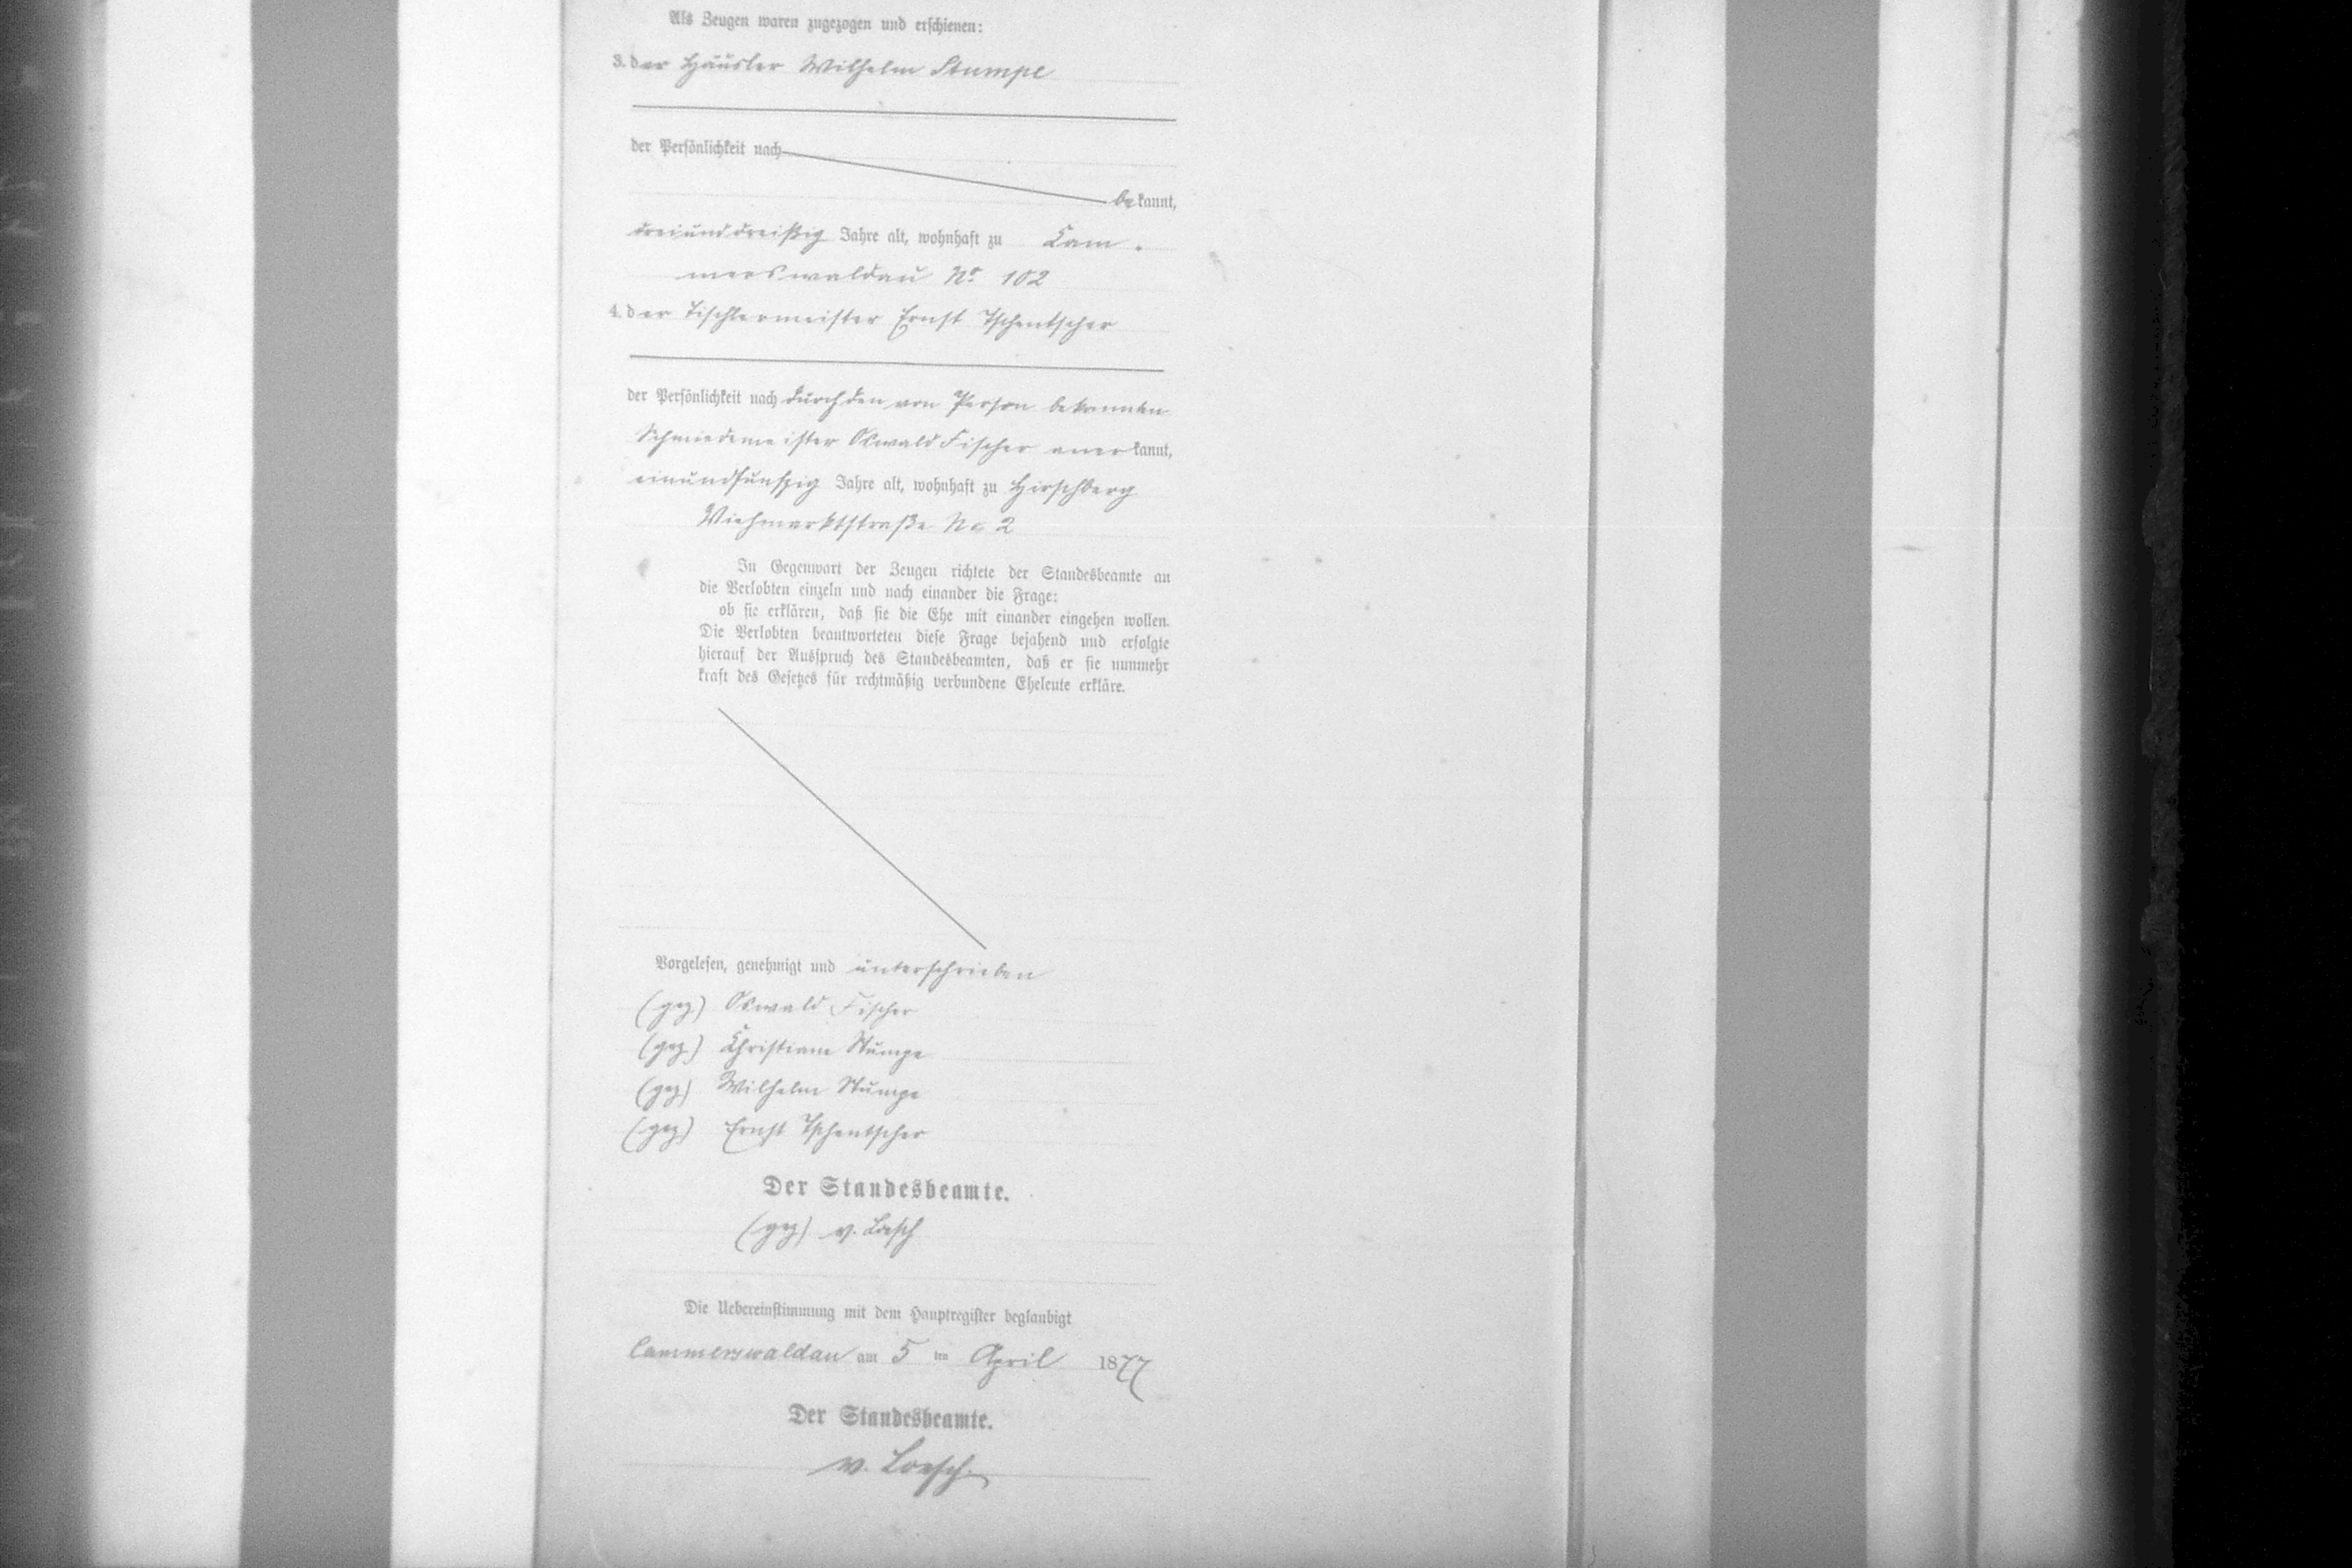 Als Zeugen waren zugezogen und erschienen:
3. der Häusler Wilhelm Stumpe
der Persönlichkeit nach
bekannt,
dreiunddreißig Jahre alt, wohnhaft zu Kam-
merswaldau No 102
4. der Tischlermeister Ernst Tschentscher
der Persönlichkeit nach durch den von Person bekannten
Schmiedemeister Oswald Fischer anerkannt,
einundfunfzig Jahre alt, wohnhaft zu Hirschberg
Viehmarktstraße No 2
In Gegenwart der Zeugen richtete der Standesbeamte an
die Verlobten einzeln und nach einander die Frage:
ob sie erklären, daß sie die Ehe mit einander eingehen wollen.
Die Verlobten beantworteten diese Frage bejahend und erfolgte
hierauf der Ausspruch des Standesbeamten, daß er sie nunmehr
kraft des Gesetzes für rechtmäßig verbundene Eheleute erkläre.
Vorgelesen, genehmigt und unterschrieben
(gez) Oswald Fischer
(gez) Christiane Stumpe
(gez) Wilhelm Stumpe
(gez) Ernst Tschentscher
Der Standesbeamte.
(gez) v. Loesch
Die Uebereinstimmung mit dem Hauptregister beglaubigt
Cammerswaldau am 5 ten April 1877
Der Standesbeamte.
v. Loesch.